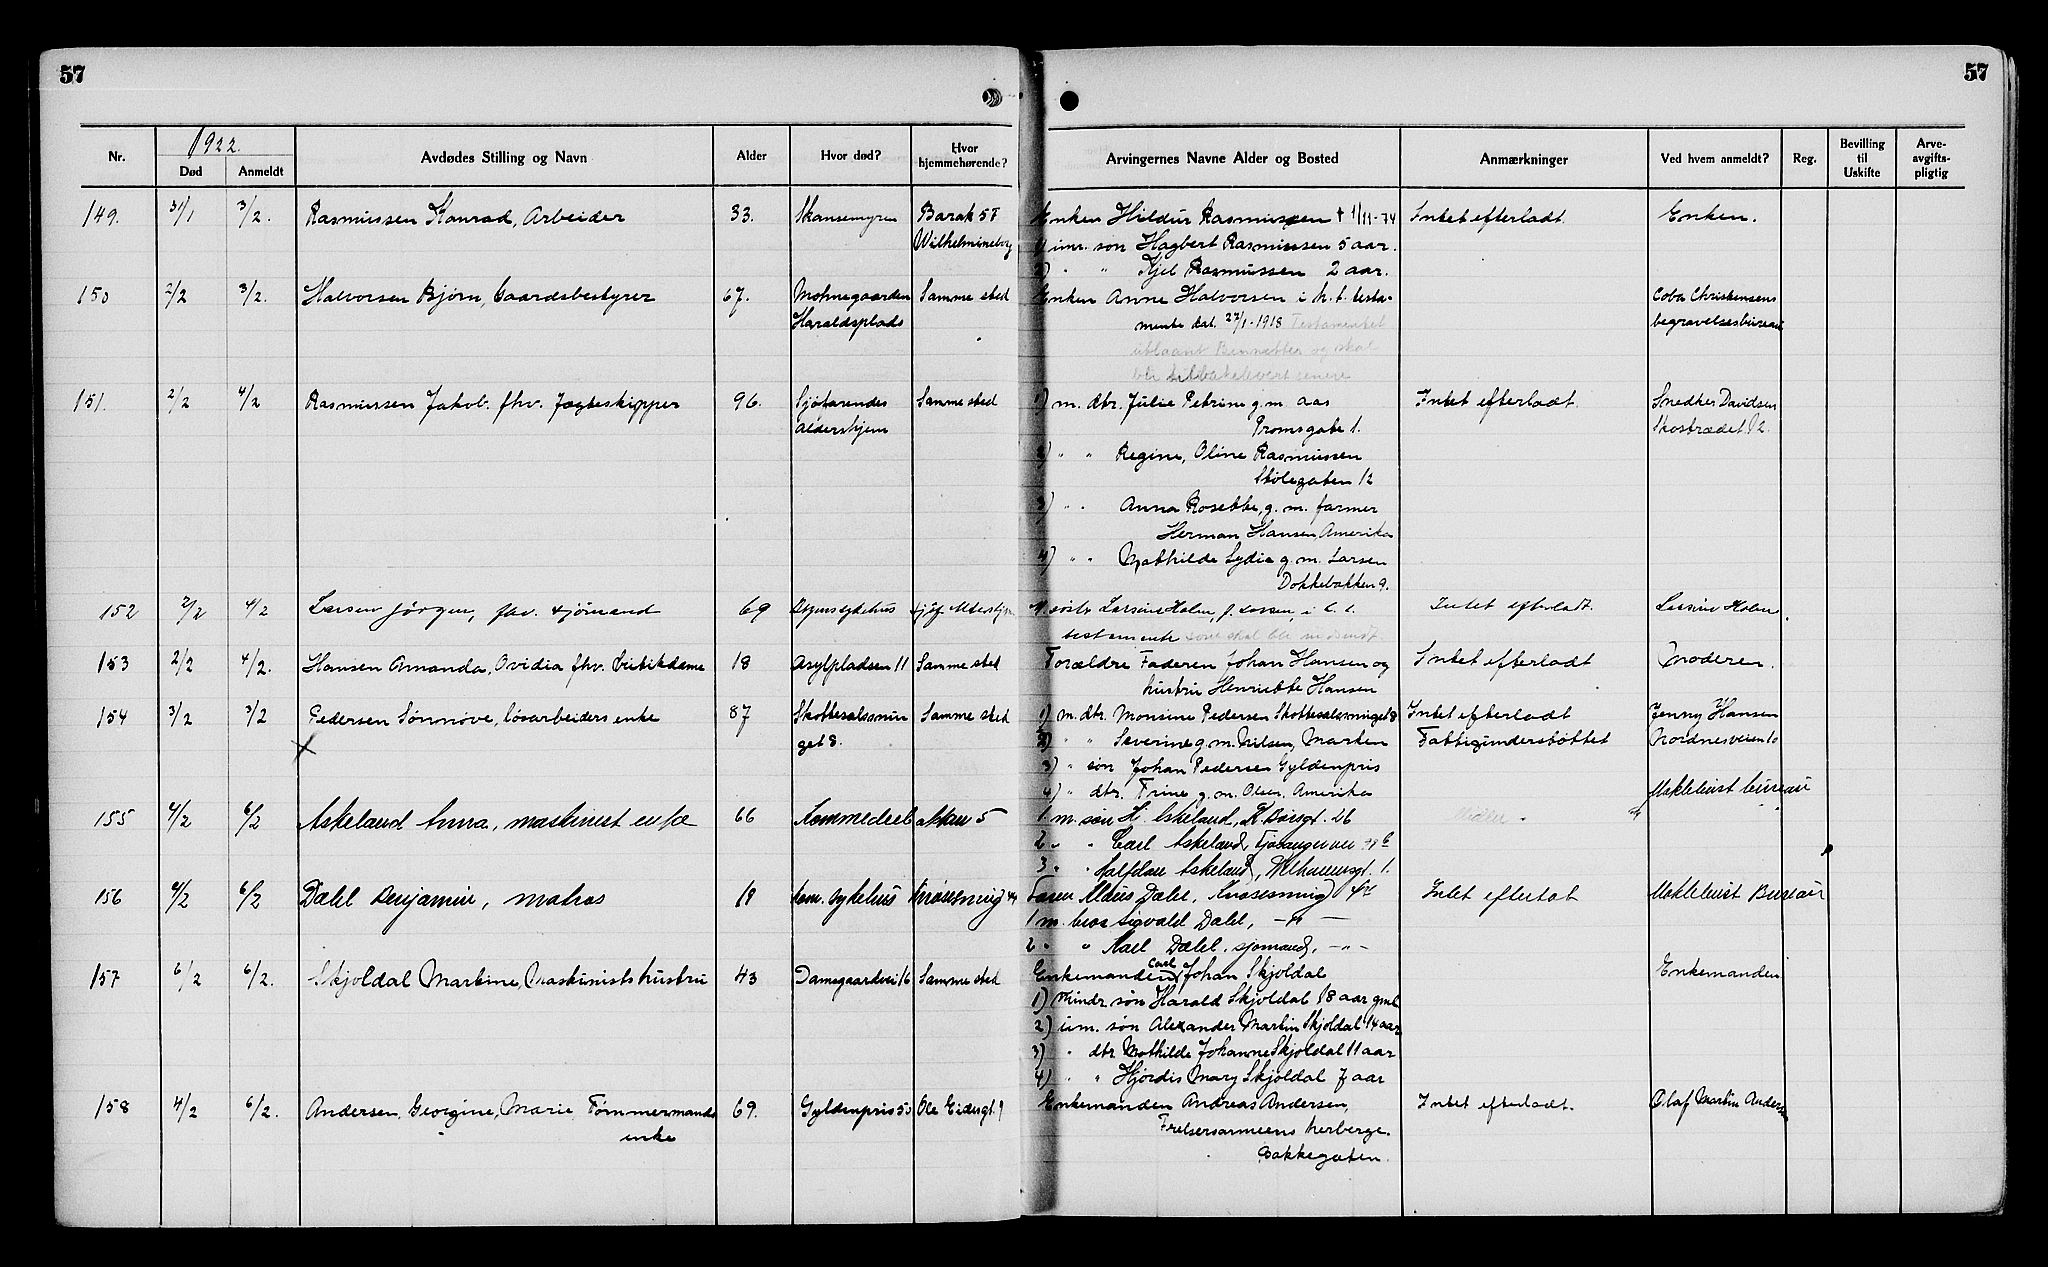 57
57
1922.
Nr.
Død
Anmeldt
Avdødes Stilling og Navn
Alder
Hvor død?
Hvor hjemmehørende?
Arvingernes Navne Alder og Bosted
Anmærkninger
Ved hvem anmeldt?
Reg.
Bevilling til Uskifte
Arve-avgifts-pligtig
149. 31/1 3/2. Rasmussen Konrad, Arbeider 33. Skansemyren Barak 57 Enken Hildur Rasmussen † 1/11-74 Intet efterladt Enken.
Wilhelmineborg 1) um. søn Hagbert Rasmussen 5 aar.
2) " " Kjel Rasmussen 2 aar.
150 2/2 3/2. Halvorsen Bjørn, Gaardsbestyrer 67. Mohnegaarden Samme sted Enken Anne Halvorsen i h. t. testa- Coba Christensens
Haraldsplads mente dat. 27/1-1918 Testamentet begravelsesbureau
utlaant og skal
bli tilbakelevert senere
151. 2/2 4/2 Rasmussen Jakob. fhv. Jagteskipper 96. Sjøfarendes Samme sted 1) m. dtr. Julie Petrine g. m. aas Intet efterladt Snedker Davidsen
Aldershjem Promsgate 1. Skostrædet 12.
2) " " Regine, Oline Rasmussen
Skolegaten 12
3) " " Anna Rosette, g. m. farmer
Herman Hansen, Amerika
4) " " Mathilde Lydia g. m. Larsen
Dokkebakken 9.
152 2/2 4/2 Larsen Jørgen, fhv. sjømand 69 sykehus sjøf. Aldershjem søster Larsine Holm, f. Larsen, Intet efterladt. Larsine Holm
testamente som skal bli indsendt.
153 2/2 4/2. Hansen Amanda, Ovidia fhv. butikdame 18 Asylpladsen 11 Samme sted Forældre Faderen Johan Hansen og Intet efterladt Moderen.
hustru Henriette Hansen
154 3/2 3/2 Pedersen Sønnøve, løsarbeiders enke 87 Skottesalsmu Samme sted 1) m. dtr. Monsine Pedersen Skottesalsmuget 8 Intet efterladt Jenny Hansen
get 8. 2) " " Severine g. m. Nilsen, Marken Fattigunderstøttet Nordnesveien 10
3) " søn Johan Pedersen Gyldenpris
4) " dtr. Trine g. m. Olsen. Amerika
Møklebust bureau
155 4/2 6/2 Askeland Anna, maskinist enke 66 5 1. m. søn H. Askeland, 26 Midler.
2 " " Carl Askeland,
3 " " Halfdan Askeland, 1.
156 4/2 6/2 Dalel Benjamin, matros 19 kom. sykehus Faren Klaus Dalel, Intet efterlat Møklebust Bureau
1 m. bror Sigvald Dalel, — " —
2 " " Dalel. sjømand, — " —
157 6/2 6/2. Skjoldal Martine, Maskinists hustru 43 Damsgaardvei 16 Samme sted Enkemanden Carl Johan Skjoldal Enkemanden
1) Mindr. søn Harald Skjoldal 18 aar gml
2) um. søn Alexander Martin Skjoldal 14 aar
3) " dtr Mathilde Johanne Skjoldal 11 aar
4) " " Hjørdis Mary Skjoldal 7 aar
158 4/2 6/2. Andersen, Georgine, Marie Tømmermands 69. Gyldenpris 53 Ole Eidesgt. 9 Enkemanden Andreas Andersen, Intet efterladt. Olaf Martin Andersen
enke Frelsesarmeens herberge.
Bakkegaten.